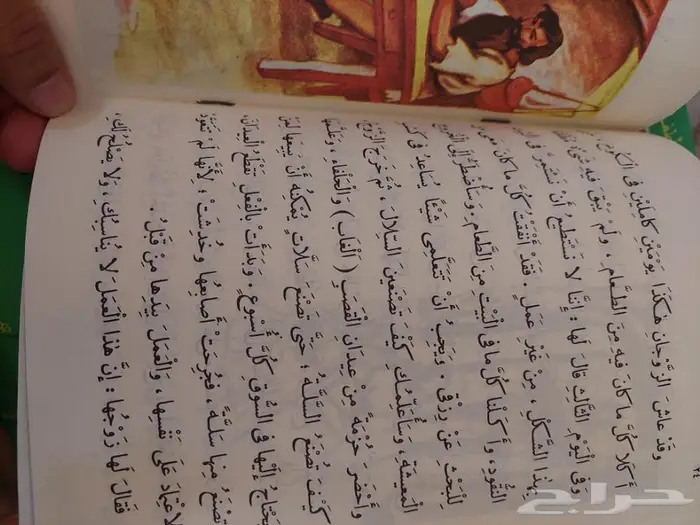 وَقَدْ عَاشَ الزَّوْجَانِ هٰكَذَا يَوْمَيْنِ كَامِلَيْنِ فِي الْكُوخِ
أَكَلَا كُلَّ مَا كَانَ فِيهِ مِنَ الطَّعَامِ ، وَلَمْ يَبْقَ فِيهِ شَيْءٌ
وَفِي الْيَوْمِ الثَّالِثِ قَالَ لَهَا : إِنَّنَا لَا نَسْتَطِيعُ أَنْ نَسْتَمِرَّ فِي
بِهٰذَا الشَّكْلِ ، مِنْ غَيْرِ عَمَلٍ . فَقَدْ أَنْفَقْتُ كُلَّ مَا كَانَ
النُّقُودِ ، وَأَكَلْنَا كُلَّ مَا فِي الْبَيْتِ مِنَ الطَّعَامِ . وَسَأُضْطَرُّ إِلَى الْخُرُوجِ
لِلْبَحْثِ عَنْ رِزْقٍ . وَيَجِبُ أَنْ تَتَعَلَّمِي شَيْئًا يُسَاعِدُ فِي
الْمَعِيشَةِ ، وَسَأُعَلِّمُكِ كَيْفَ تَصْنَعِينَ السِّلَالَ . ثُمَّ خَرَجَ الزَّوْجُ
وَأَحْضَرَ حُزْمَةً مِنْ عِيدَانِ الْقَصَبِ ( الْغَابِ ) وَالْحَلْفَاءِ ، وَعَلَّمَهَا
كَيْفَ تُصْنَعُ السَّلَّةُ ، حَتَّى تَصْنَعَ سَلَّاتٍ يُمْكِنُهُ أَنْ يَبِيعَهَا لِمَنْ
يَحْتَاجُ إِلَيْهَا فِي السُّوقِ كُلَّ أُسْبُوعٍ . وَبَدَأَتْ بِالْفِعْلِ تَقْطَعُ الْعِيدَانَ
تَصْنَعُ مِنْهَا سَلَّةً ، فَجُرِحَتْ أَصَابِعُهَا وَخُدِشَتْ ، لِأَنَّهَا لَمْ تَتَعَوَّدْ
الِاعْتِمَادَ عَلَى نَفْسِهَا ، وَالْعَمَلَ بِيَدِهَا مِنْ قَبْلُ .
فَقَالَ لَهَا زَوْجُهَا : إِنَّ هٰذَا الْعَمَلَ لَا يُنَاسِبُكِ ، وَلَا يَصْلُحُ لَكِ ،
حراج